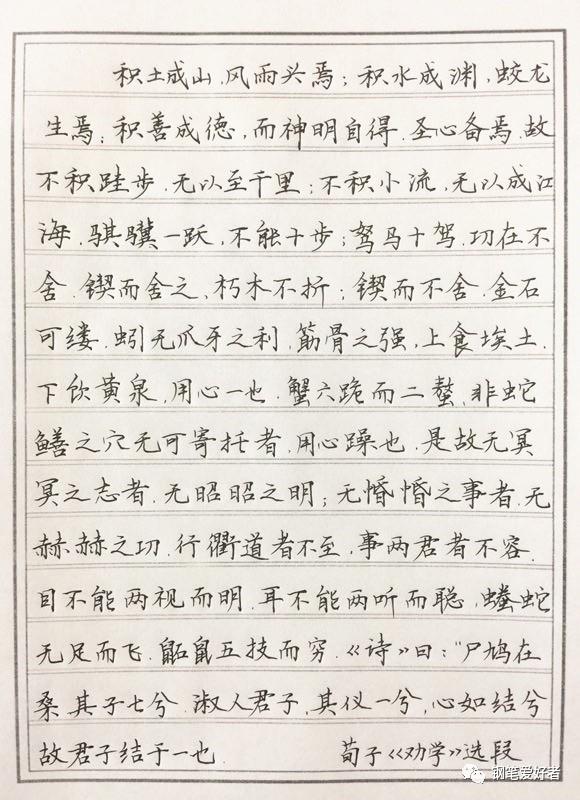 积土成山,风雨头焉;积水成渊,蛟龙
生焉;积善成德,而神明自得.圣心备焉.故
不积跬步.无以至千里;不积小流,无以成江
海.骐骥一跃,不能十步;驽马十驾.功在不
舍.锲而舍之、朽木不折;锲而不舍.金石
可缕.蚓无爪牙之利,筋骨之强,上食埃土.
下饮黄泉,用心一也.蟹六跪而二螯,非蛇
鳝之穴无可寄托者.用心躁也.是故无冥
冥之志者.无昭昭之明;无惛惛之事者.无
赫赫之功.行衢道者不至,事两君者不容.
目不能两视而明.耳不能两听而聪,螣蛇
无足而飞.鼫鼠五技而穷.《诗》曰:“尸鸠在
桑.其子七兮.淑人君子,其仪一兮,心如结兮
故君子结于一也. 荀子《劝学》选段
钢笔爱好者